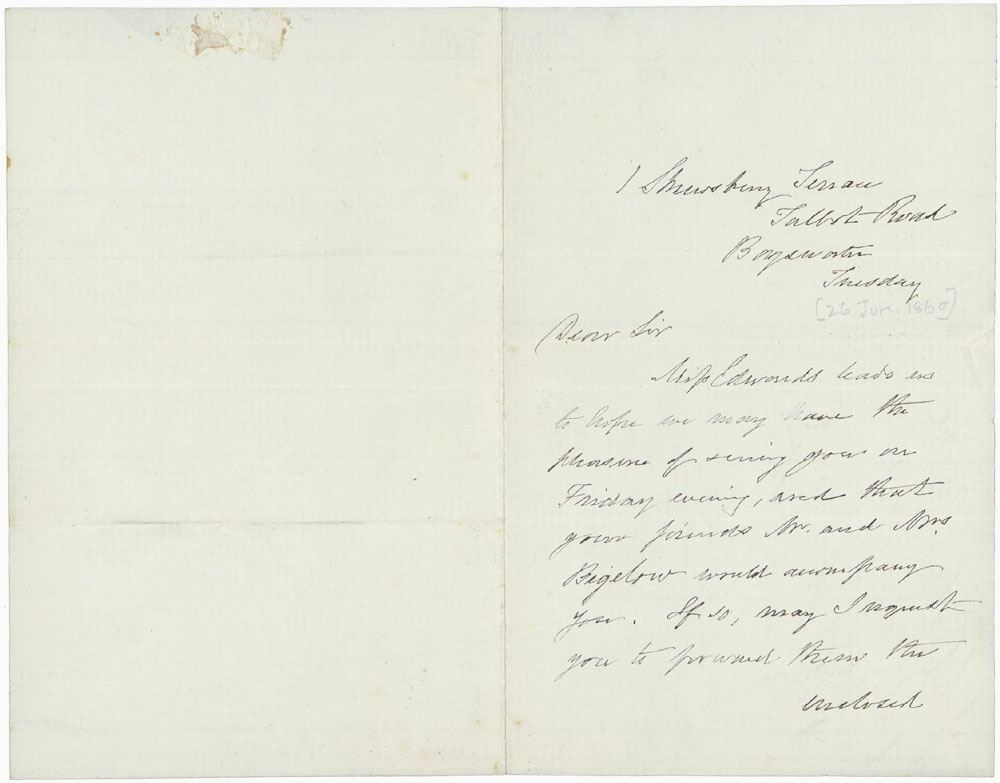 1 Shrewsbury Terrace
Talbot Road
Bayswater
Tuesday
[26 Jun. 1860]
Dear Sir
Miss Edwards leads us
to hope we may have the
pleasure of seeing you on
Friday evening, and that
your friends Mr. and Mrs.
Bigelow would accompany
you. If so, may I request
you to forward them the
enclosed